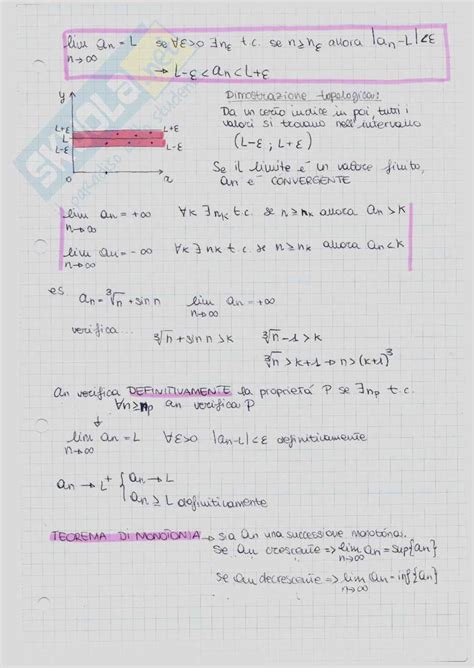 lim an = L se ∀ε>0 ∃nε t.c. se n≥nε allora |an-L|<ε
n→∞
→ L-ε < an < L+ε
Dimostrazione topologica:
Da un certo indice in poi, tutti i
valori si trovano nell'intervallo
(L-ε ; L+ε)
Se il limite è un valore finito,
an è CONVERGENTE
y
L+ε
L
L-ε
L+ε
L-ε
0
n
lim an = +∞ ∀k ∃nk t.c. se n≥nk allora an>k
n→∞
lim an = -∞ ∀k ∃nk t.c. se n≥nk allora an<k
n→∞
es. an = ∛n + sin n lim an = +∞
n→∞
verifica...
∛n + sin n > k ∛n - 1 > k
∛n > k+1 → n > (k+1)³
An verifica DEFINITIVAMENTE la proprietà P se ∃np t.c.
∀n≥np an verifica P
↓
lim an = L ∀ε>0 |an-L|<ε definitivamente
n→∞
an → L⁺ { an → L
an ≥ L definitivamente
TEOREMA DI MONOTONIA → sia an una successione monotòna.
Se an crescente => lim an = sup{an}
n→∞
se an decrescente => lim an = inf{an}
n→∞
SKUOLA.net